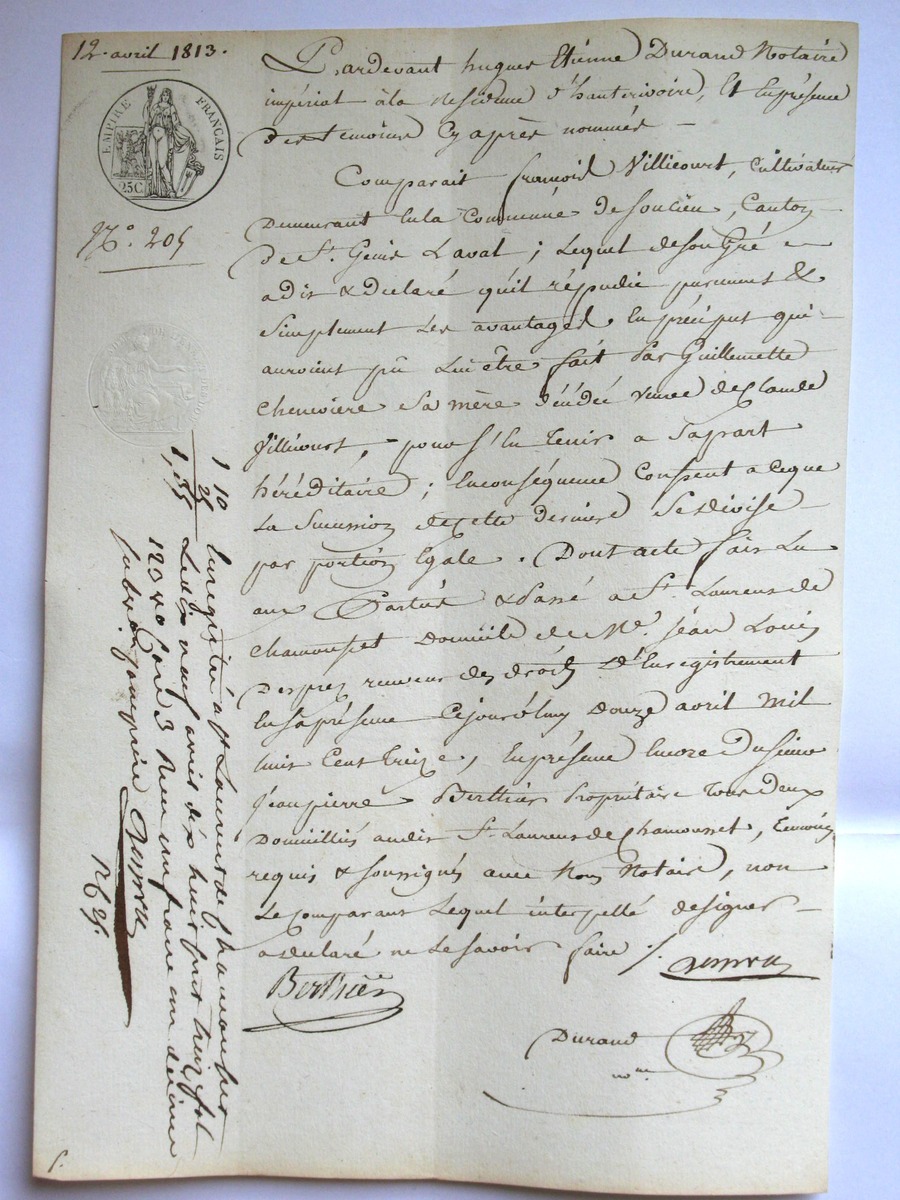 12. avril 1813.
EMPIRE FRANÇAIS
25C
N.º 205
Pardevant hugues Etiènne Durand Notaire
impérial à la Residence d'hauterivoire, Et Enprésence
des temoins Cy après nommés —
Comparait françois Villicourt, Cultivateur
Demeurant En la Commune de soucieu, Canton
de St. Genis Laval ; Lequel deson Gré
a dit & declaré qu'il répudie purement &
Simplement Les avantages En préciput qui
auroient pû Lui être fait Par Guillemette
Cheneviere Sa mère décédée veuve de Claude
Villicourt, — pour s'En Tenir a Sa part
héréditaire ; Enconséquence Consent a Ceque
La Succession de Cette Derniere Se divise —
par portion Egale . Dont acte fait Lu
aux Parties & Passé a St. Laurens de
Chamousset Domicile de Me. Jean Louis
Desprez receveur des droits d'Enregistrement
En Sa présence Cejourd'huy Douze avril Mil
huit Cent Treize, En présence Encore du sieur
Jean pierre Berthier Propriétaire Tous Deux
Domicilliés audit St. Laurens de Chamousset, Temoins
requis & soussignés avec Nous Notaire, non
Le Comparant Lequel interpellé de signer —
a declaré ne Le Savoir faire ./.
Berthier
Durand
nore
1 10
Enregistré a St Laurent de Chamousset
Le dix neuf avril dix huit cent treize fol
120 Vo Case 3 Recu un franc un décime